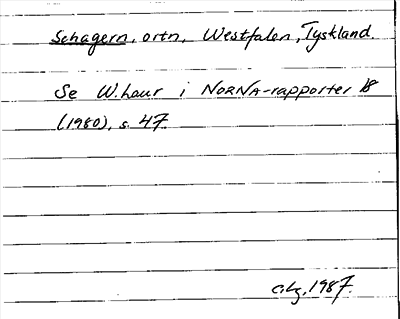 Schagern, ortn, Westfalen, Tyskland.
Se W. Laur i NORNA-rapporter 18
(1980), s. 47.
1987.